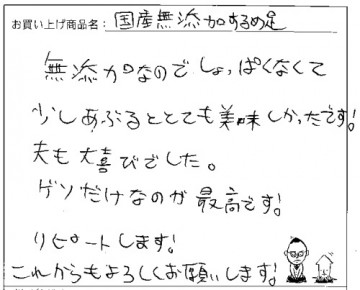 お買い上げ商品名： 国産無添加するめ足
無添加なのでしょっぱくなくて
少しあぶるととても美味しかったです!
夫も大喜びでした。
ゲソだけなのが最高です!
リピートします!
これからもよろしくお願いします!